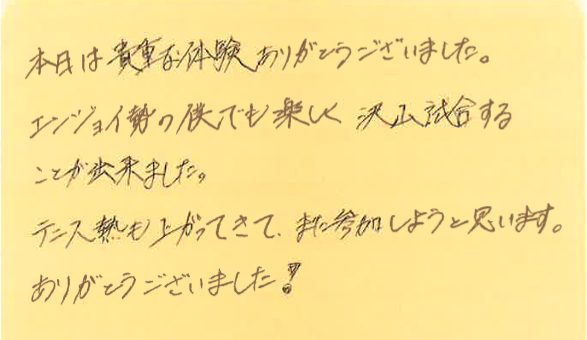 本日は貴重な体験ありがとうございました。
エンジョイ勢の僕でも楽しく沢山試合する
ことが出来ました。
テニス熱も上がってきて、また参加しようと思います。
ありがとうございました!